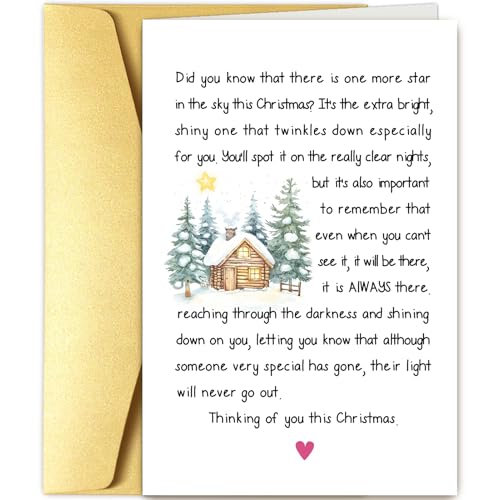 Did you know that there is one more star
in the sky this Christmas? It's the extra bright,
shiny one that twinkles down especially
for you. You'll spot it on the really clear nights,
but it's also important
to remember that
even when you can't
see it, it will be there,
it is ALWAYS there.
reaching through the darkness and shining
down on you, letting you know that although
someone very special has gone, their light
will never go out.
Thinking of you this Christmas.